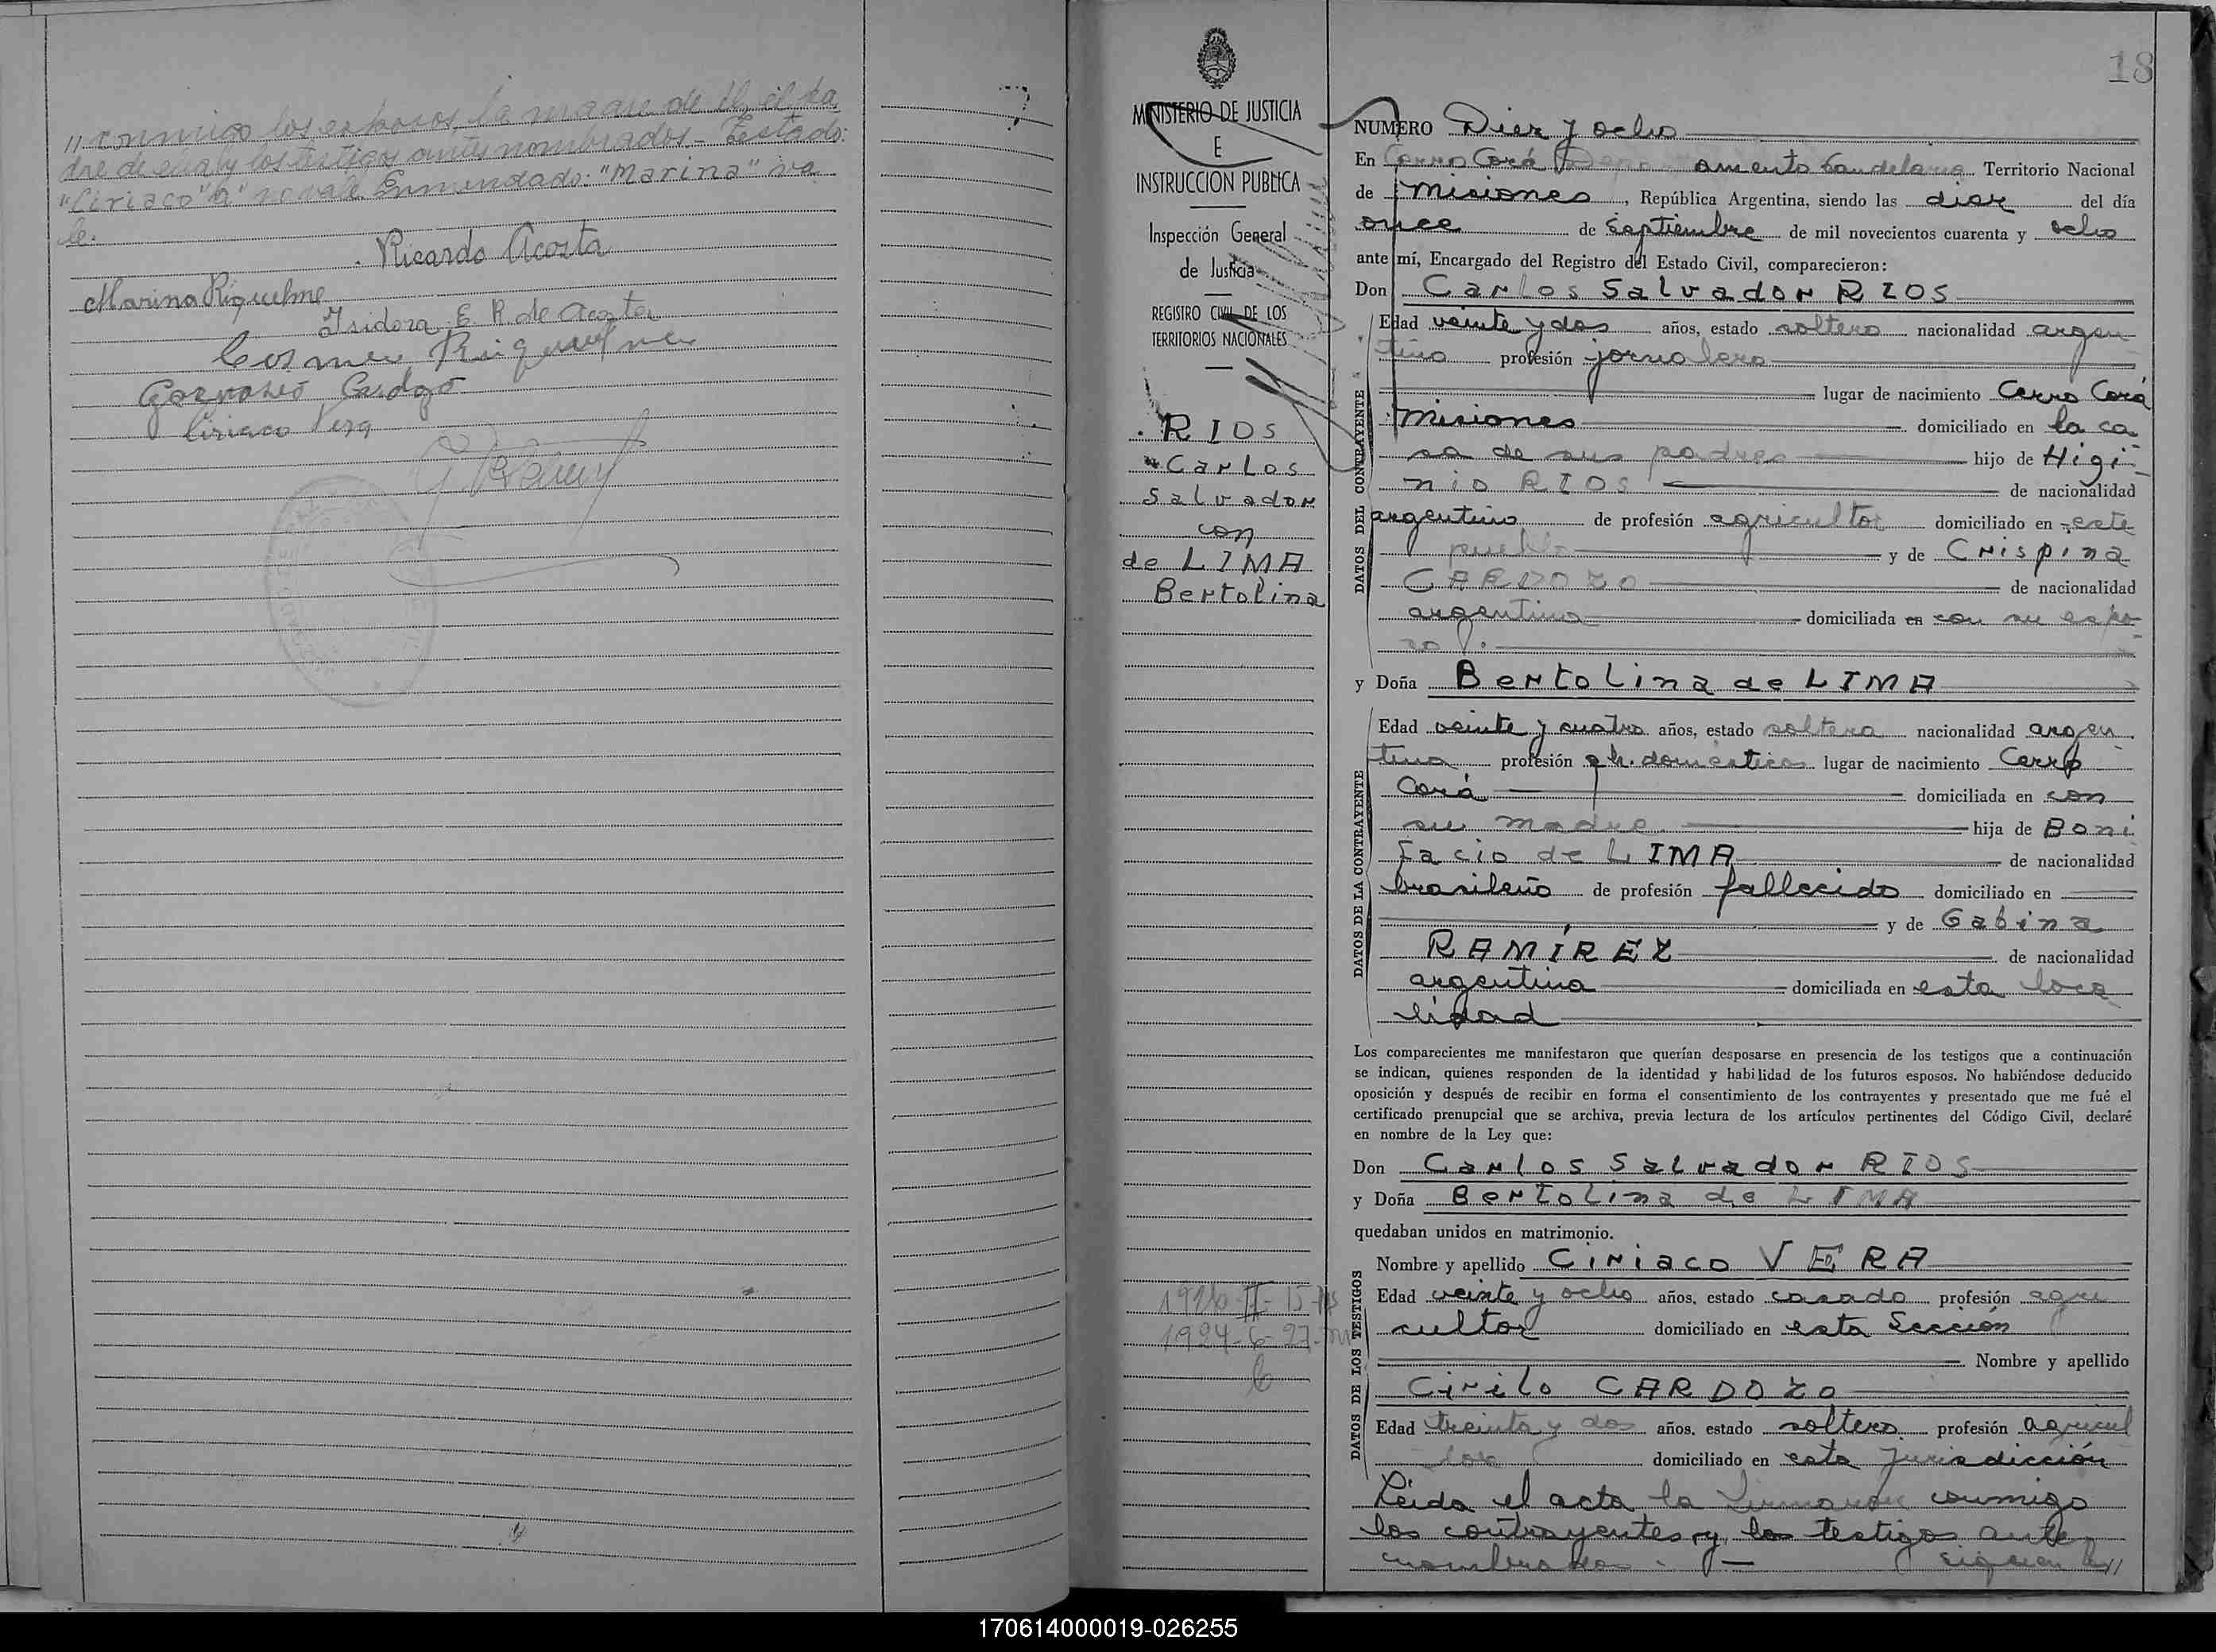 " conmigo los esposos, la madre de él, el pa
dre de ella y los testigos antes nombrados.- Testado:
"Ciriaco" "a" no vale. Enmendado: "Marina" va
le.
Ricardo Acosta
Marina Riquelme
Isidora E. R. de Acosta
Cosme Riquelme
Ciriaco Vera
18
MINISTERIO DE JUSTICIA
E
INSTRUCCION PUBLICA
Inspección General
de Justicia
REGISTRO CIVIL DE LOS
TERRITORIOS NACIONALES
RIOS
Carlos
Salvador
con
de LIMA
Bertolina
NUMERO Diez y ocho
En Cerro Corá Departamento Candelaria Territorio Nacional
de Misiones, República Argentina, siendo las diez del día
once de Septiembre de mil novecientos cuarenta y ocho
ante mí, Encargado del Registro del Estado Civil, comparecieron:
Don Carlos Salvador RIOS
DATOS DEL CONTRAYENTE
Edad veinte y dos años, estado soltero nacionalidad argen
tino profesión jornalero
lugar de nacimiento Cerro Corá
Misiones domiciliado en la ca
sa de sus padres hijo de Higi
nio RIOS de nacionalidad
argentino de profesión agricultor domiciliado en este
pueblo y de Crispina
CARDOZO de nacionalidad
argentina domiciliada en con su espo
so.
y Doña Bertolina de LIMA
DATOS DE LA CONTRAYENTE
Edad veinte y cuatro años, estado soltera nacionalidad argen
tina profesión q h. domésticos lugar de nacimiento Cerro
Corá domiciliada en con
su madre. hija de Boni
facio de LIMA de nacionalidad
brasileño de profesión fallecido domiciliado en
y de Gabina
RAMÍREZ de nacionalidad
argentina domiciliada en esta loca
lidad
Los comparecientes me manifestaron que querían desposarse en presencia de los testigos que a continuación
se indican, quienes responden de la identidad y habilidad de los futuros esposos. No habiéndose deducido
oposición y después de recibir en forma el consentimiento de los contrayentes y presentado que me fué el
certificado prenupcial que se archiva, previa lectura de los artículos pertinentes del Código Civil, declaré
en nombre de la Ley que:
Don Carlos Salvador RIOS
y Doña Bertolina de LIMA
quedaban unidos en matrimonio.
DATOS DE LOS TESTIGOS
Nombre y apellido Ciriaco VERA
Edad veinte y ocho años, estado casado profesión agri
cultor domiciliado en esta Sección
Nombre y apellido
Cirilo CARDOZO
Edad treinta y dos años, estado soltero profesión agricul
tor domiciliado en esta Jurisdicción
Leída el acta la firmaron conmigo
los contrayentes y los testigos ante
nombrados.- siguen las//
170614000019-026255